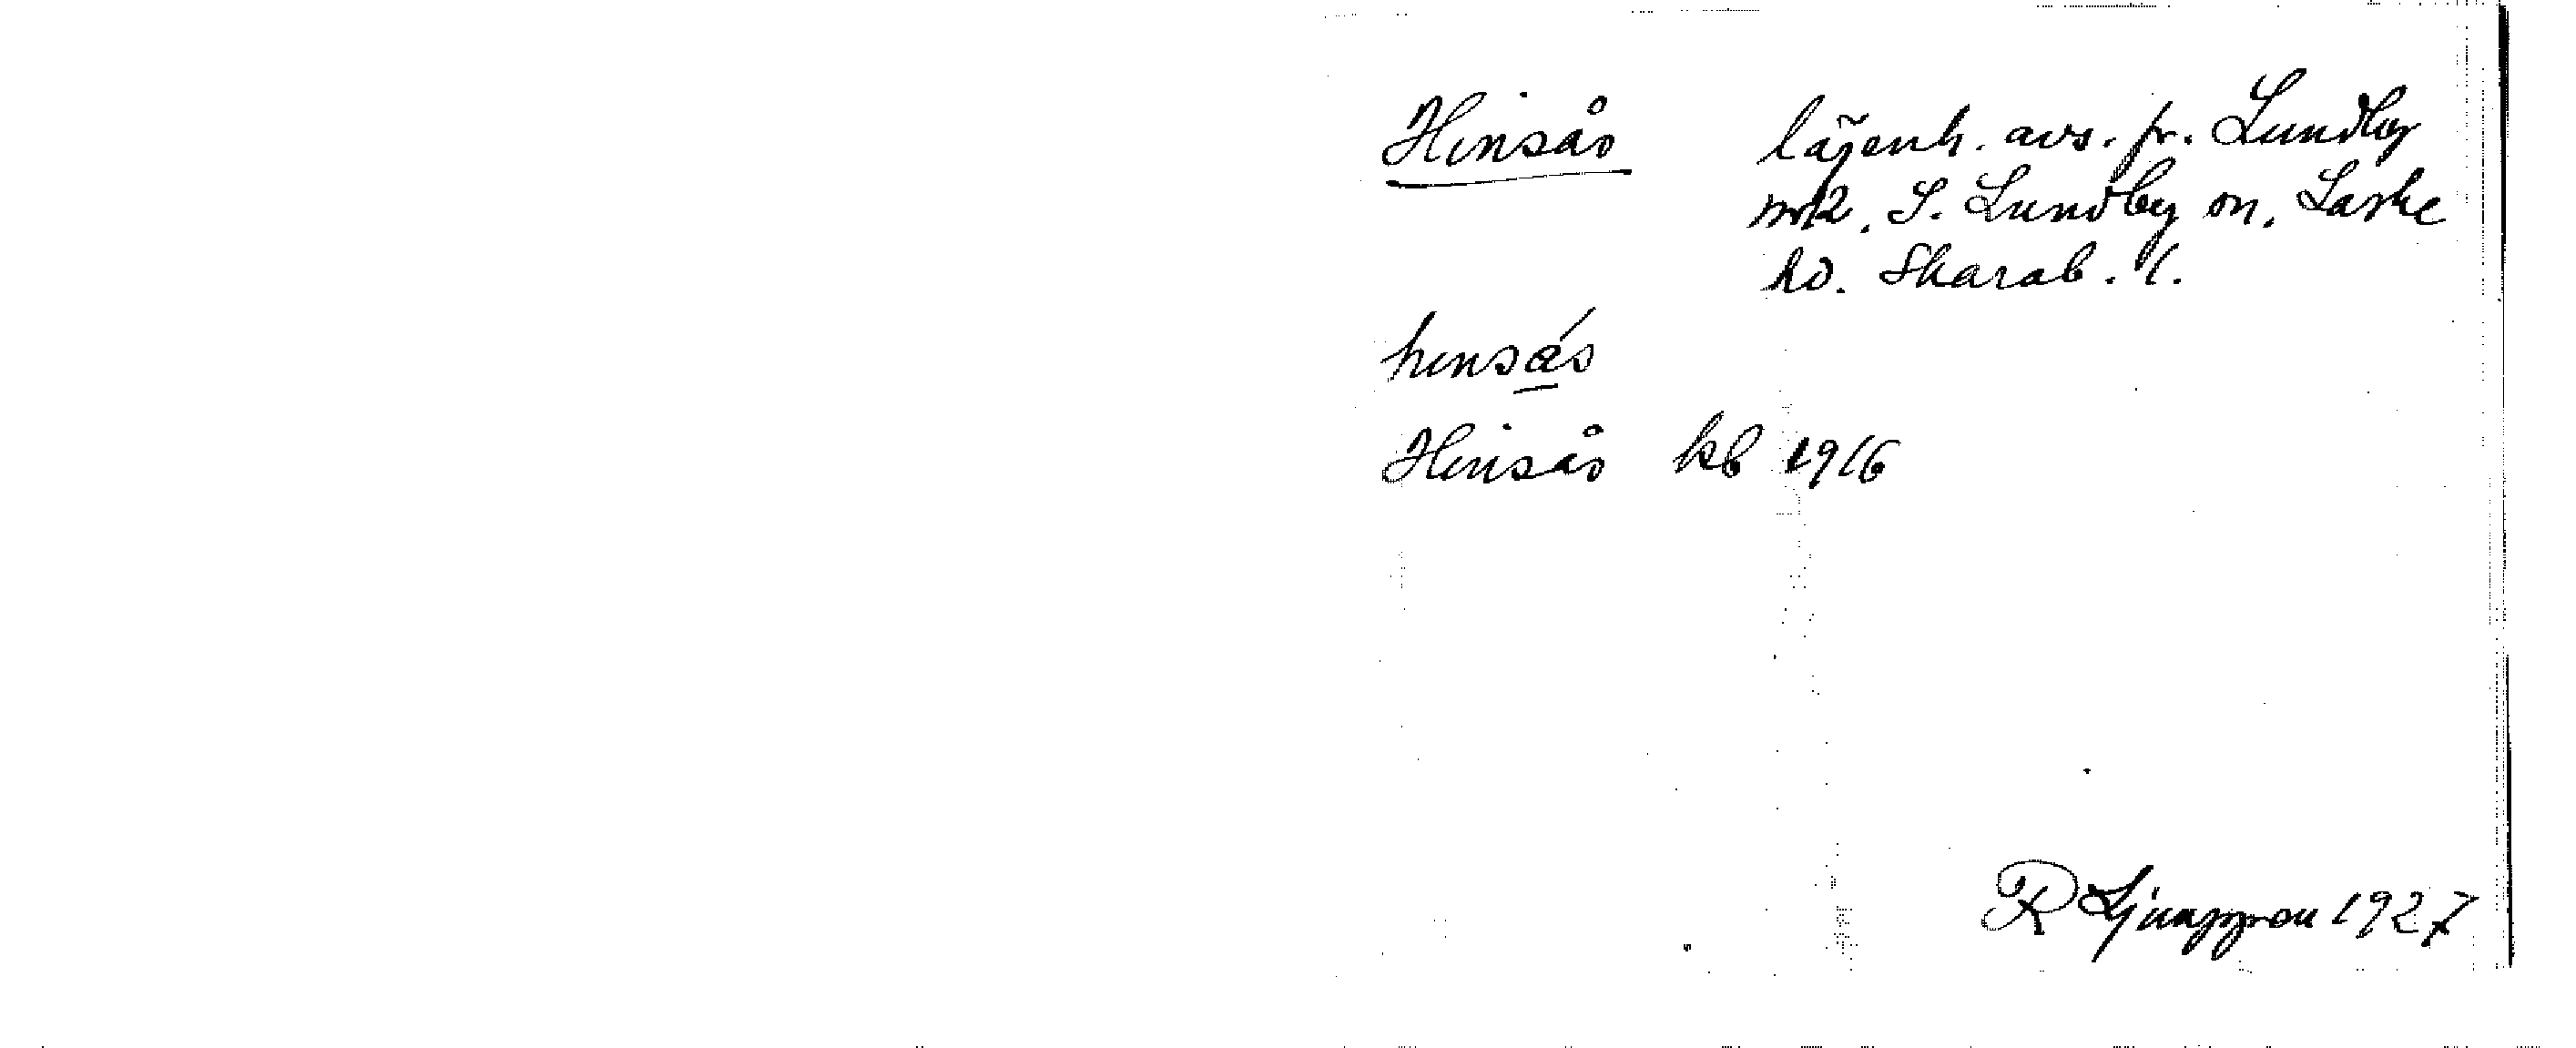 Hinsås lägenh. avs. fr. Lundby
nr 2. S. Lundby sn. Laske
hd. Skarab. l.
hinsås
Hinsås kb 1916
R Ljunggren 1927